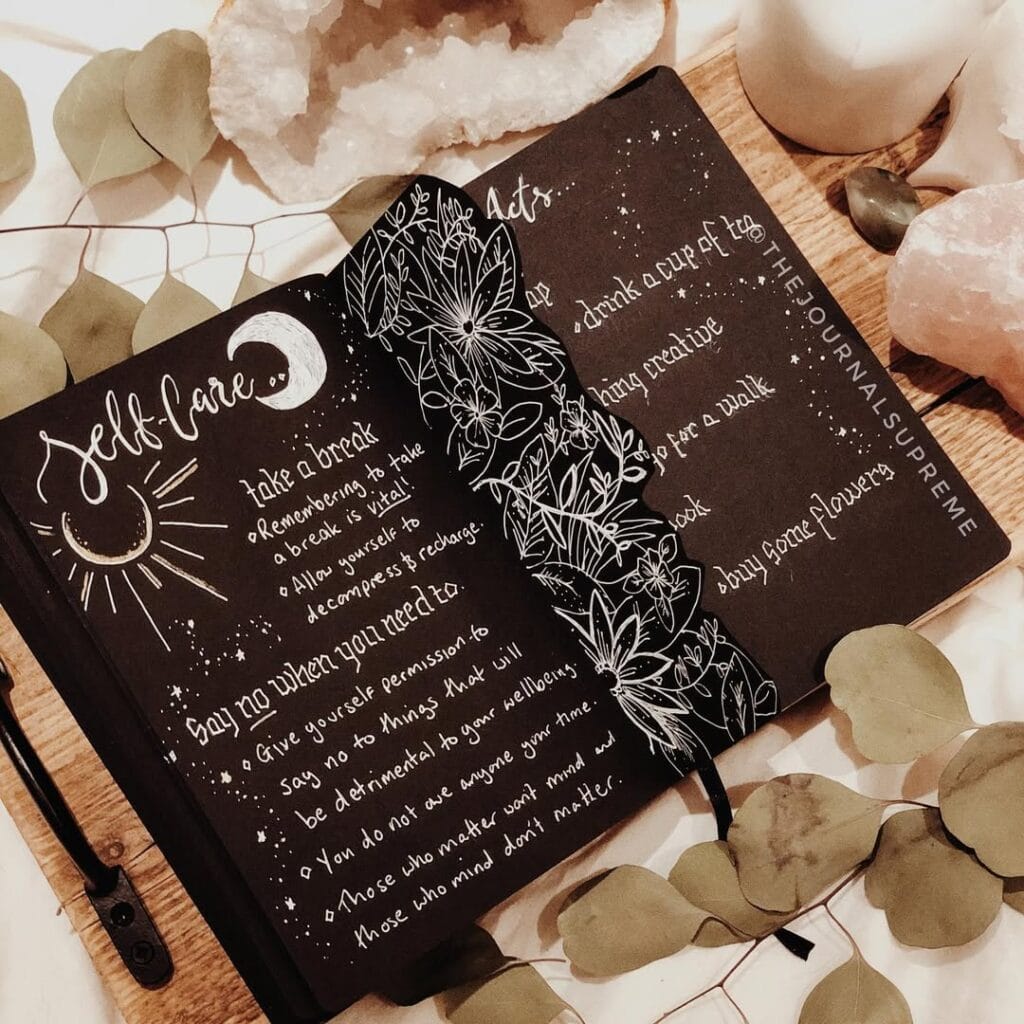 Self-Care
take a break
Remembering to take
a break is vital!
Allow yourself to
decompress & recharge.
Say no when you need to
Give yourself permission to
say no to things that will
be detrimental to your wellbeing
You do not owe anyone your time.
Those who matter won't mind and
those who mind don't matter.
Acts...
drink a cup of tea
creative
go for a walk
buy some flowers
@THEJOURNALSUPREME